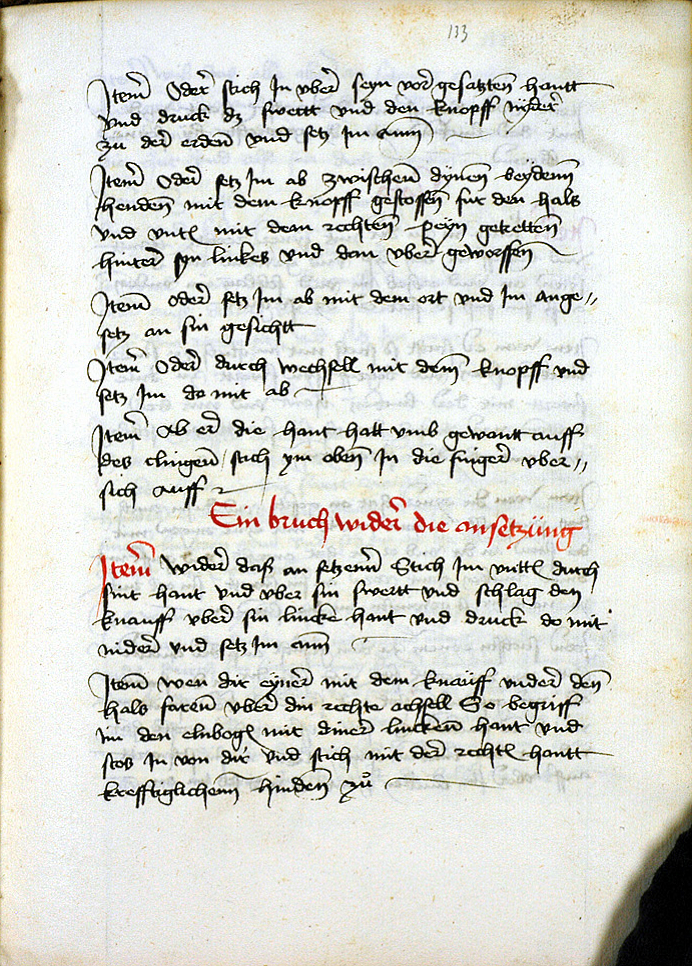 133
Item Oder stich In vber seyn vor gesatzten hantt
vnd druck dz swertt vnd den knopff nyder
zu der erden vnd setz Im ann
Item Oder setz Im ab zwischenn dynen beydenn
henden mit dem knopff gestossen fur den hals
vnd vntt mit dem rechten peyn getretten
hinter syn linkes vnd dan vber geworffen
Item oder setz Im ab mit dem ort vnd Im ange〃
setz an sin gesichtt
Item Oder durch wechsell mit dem knopff vnd
setz Im do mit ab
Item Ab er die hant hatt vmb gewantt auff
des clingen stich ym oben In die finger vber〃
sich auff
Ein bruch wider die ansetzüng
Item Wider daß an setzenn Stich Im vntt durch
sint hant vnd vber sin swertt vnd schlag den
knauff vber sin lincke hant vnd druck do mit
nider vnd setz Im ann
Item wen dir eyner mit dem knauff vnder den
hals faren vber din rechte achsell So begriff
im den elnbog mit diner lincken hant vnd
stos In von dir vnd stich mit der recht hantt
krefftiglichenn hinden zů